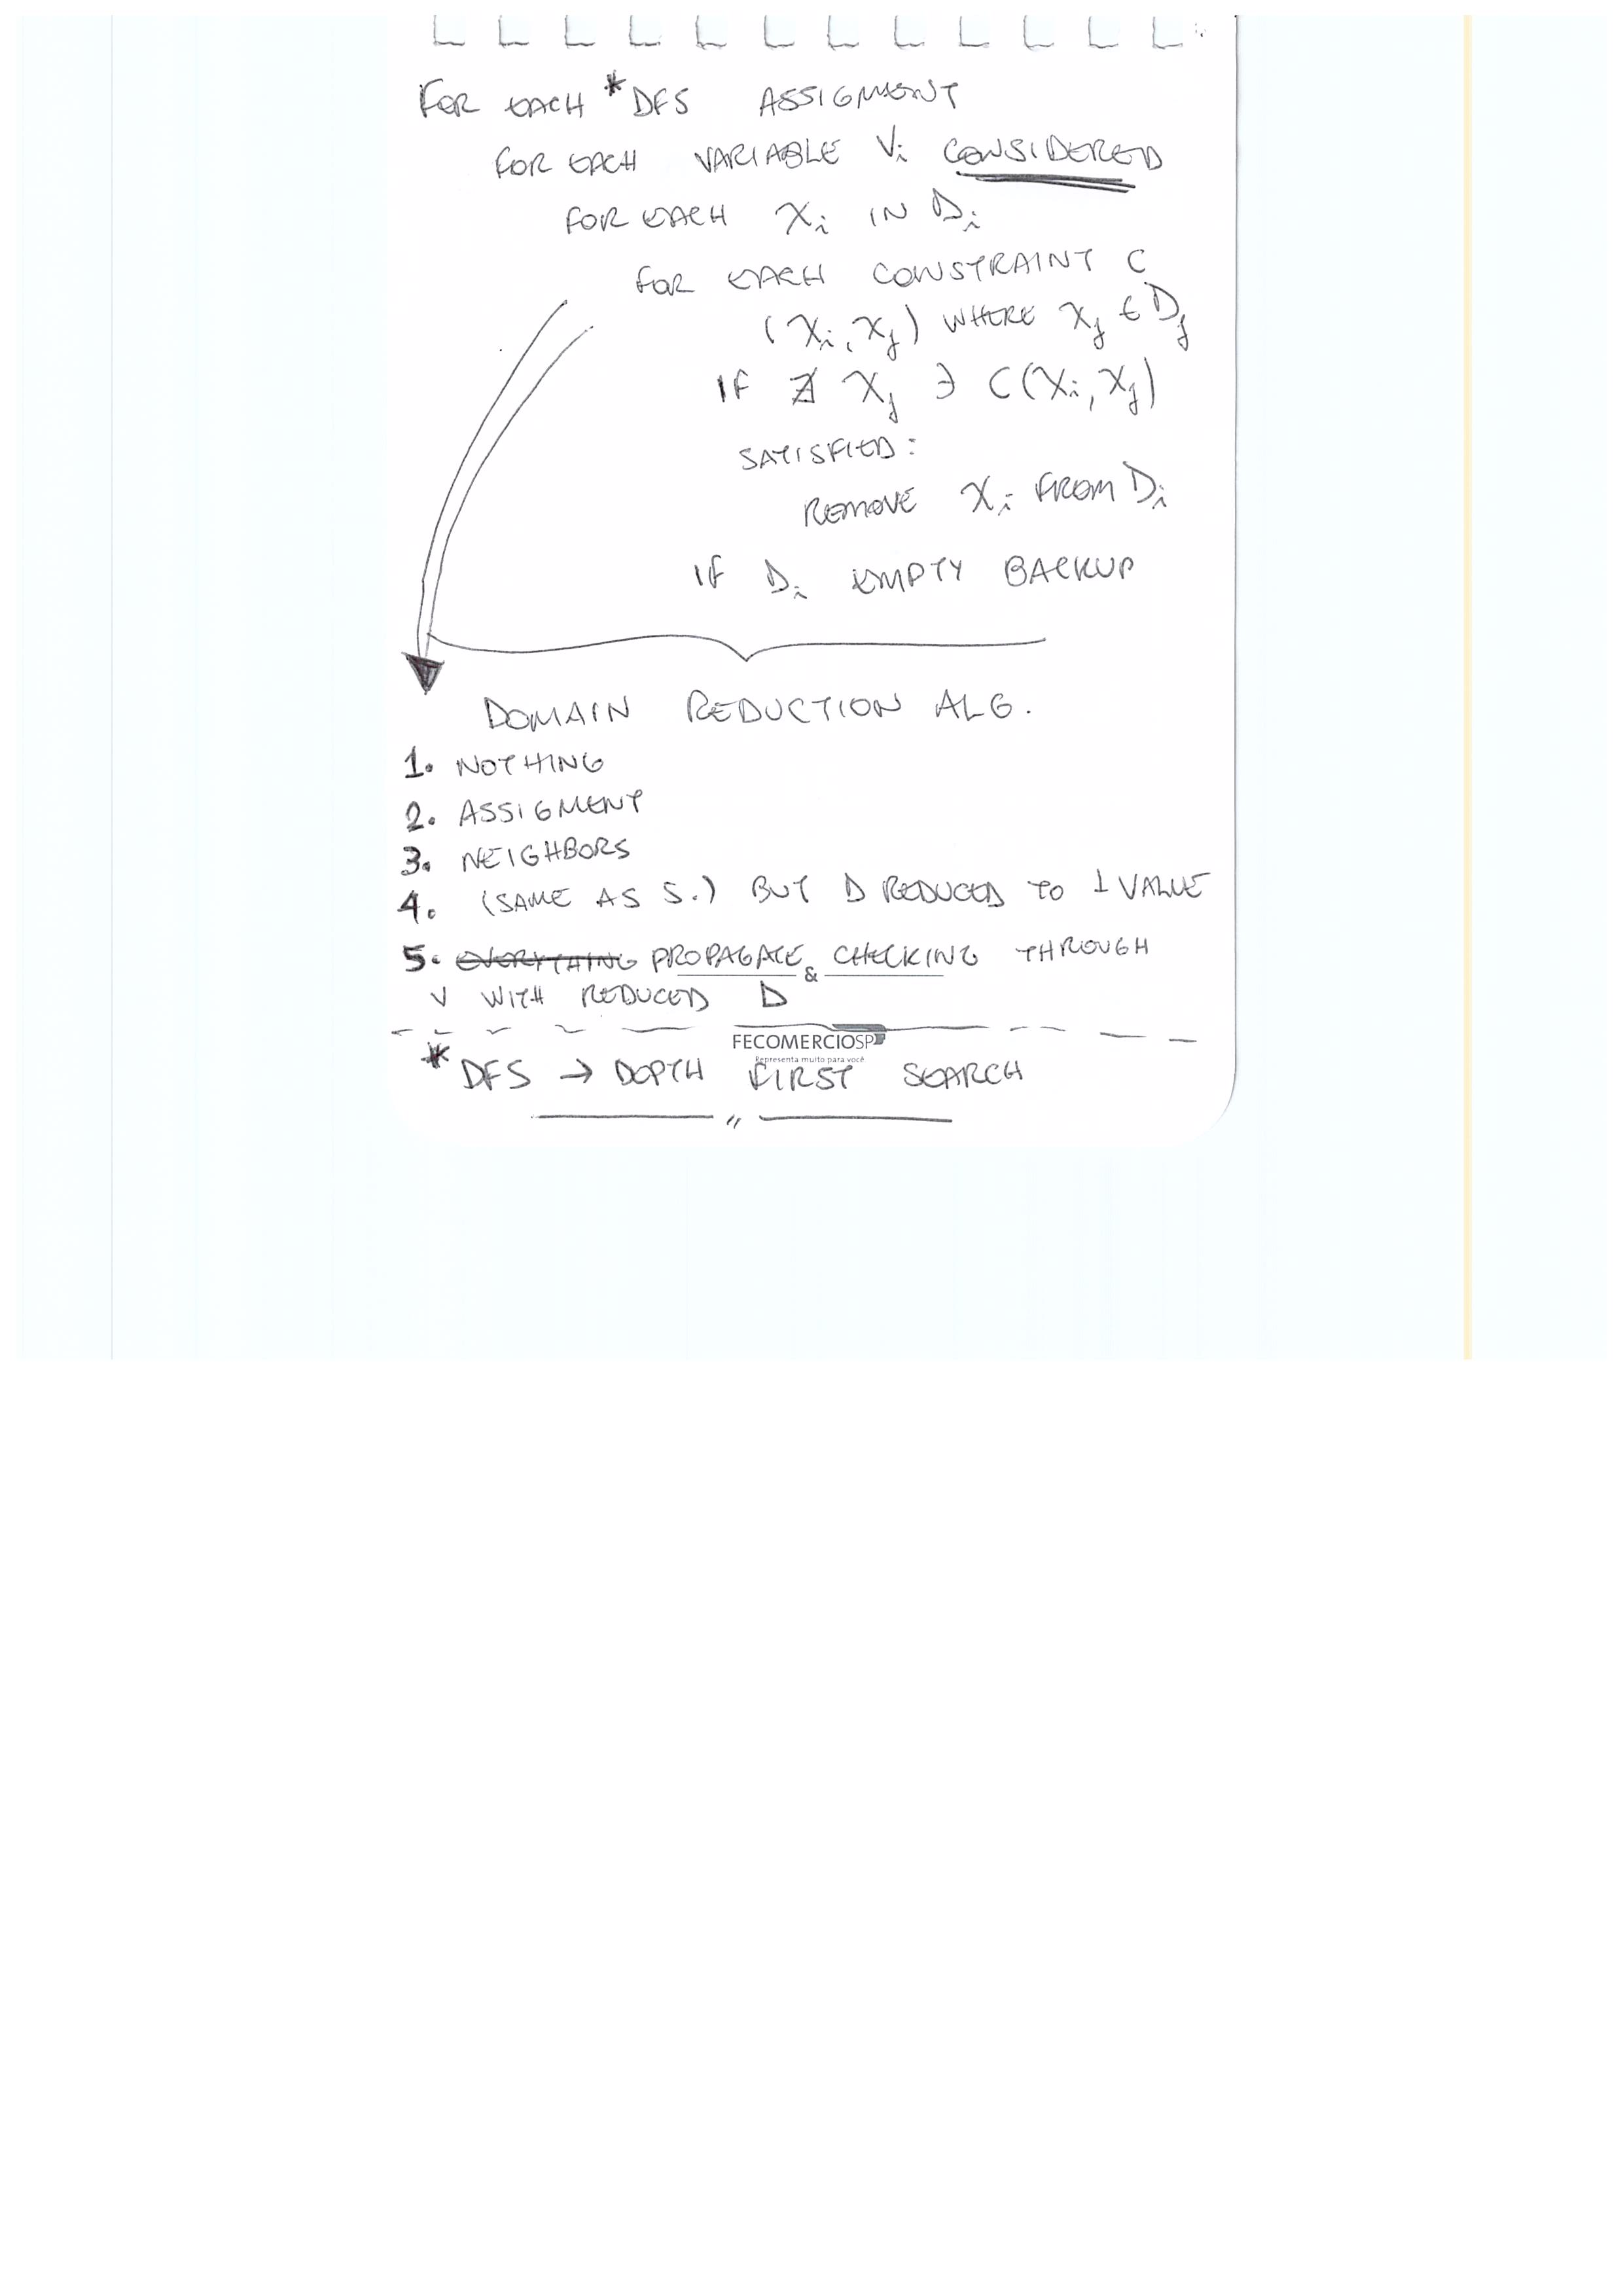 FOR EACH *DFS ASSIGMENT
FOR EACH VARIABLE Vi CONSIDERED
FOR EACH Xi IN Di
FOR EACH CONSTRAINT C
(Xi, Xj) WHERE Xj ∈ Dj
IF ∄ Xj ∋ C(Xi, Xj)
SATISFIED:
REMOVE Xi FROM Di
IF Di EMPTY BACKUP
DOMAIN REDUCTION ALG.
1. NOTHING
2. ASSIGMENT
3. NEIGHBORS
4. (SAME AS 5.) BUT D REDUCED TO 1 VALUE
5. EVERYTHING PROPAGATE & CHECKING THROUGH
V WITH REDUCED D
FECOMERCIOSP
Representa muito para você
*DFS → DEPTH FIRST SEARCH